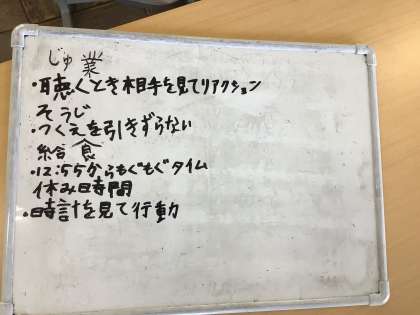 じゅ業
・聴くとき相手を見てリアクション
そうじ
・つくえを引きずらない
給食
・12:55からもぐもぐタイム
休み時間
・時計を見て行動